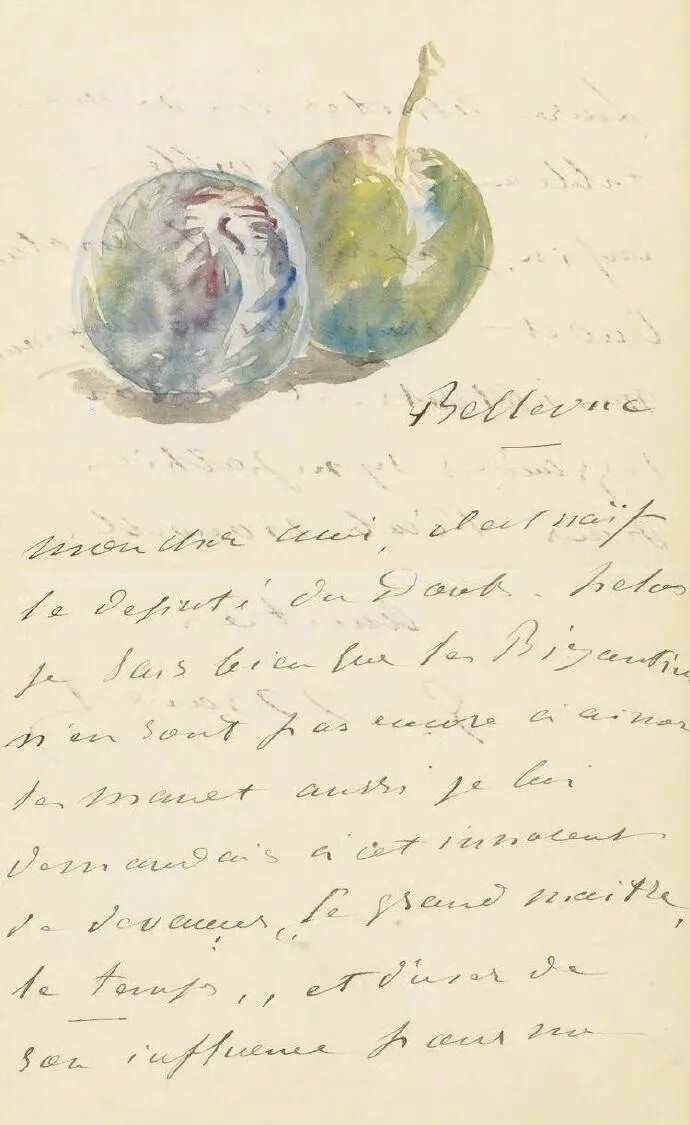 Bellevue
mon cher ami, il est naïf
le deputé du Doubs. helas
je sais bien que les Bizantins
n'en sont pas encore à aimer
les manet aussi je lui
demandais à cet innocent
de devancer „ le grand maitre,
le temps „ et d'user de
son influence pour me